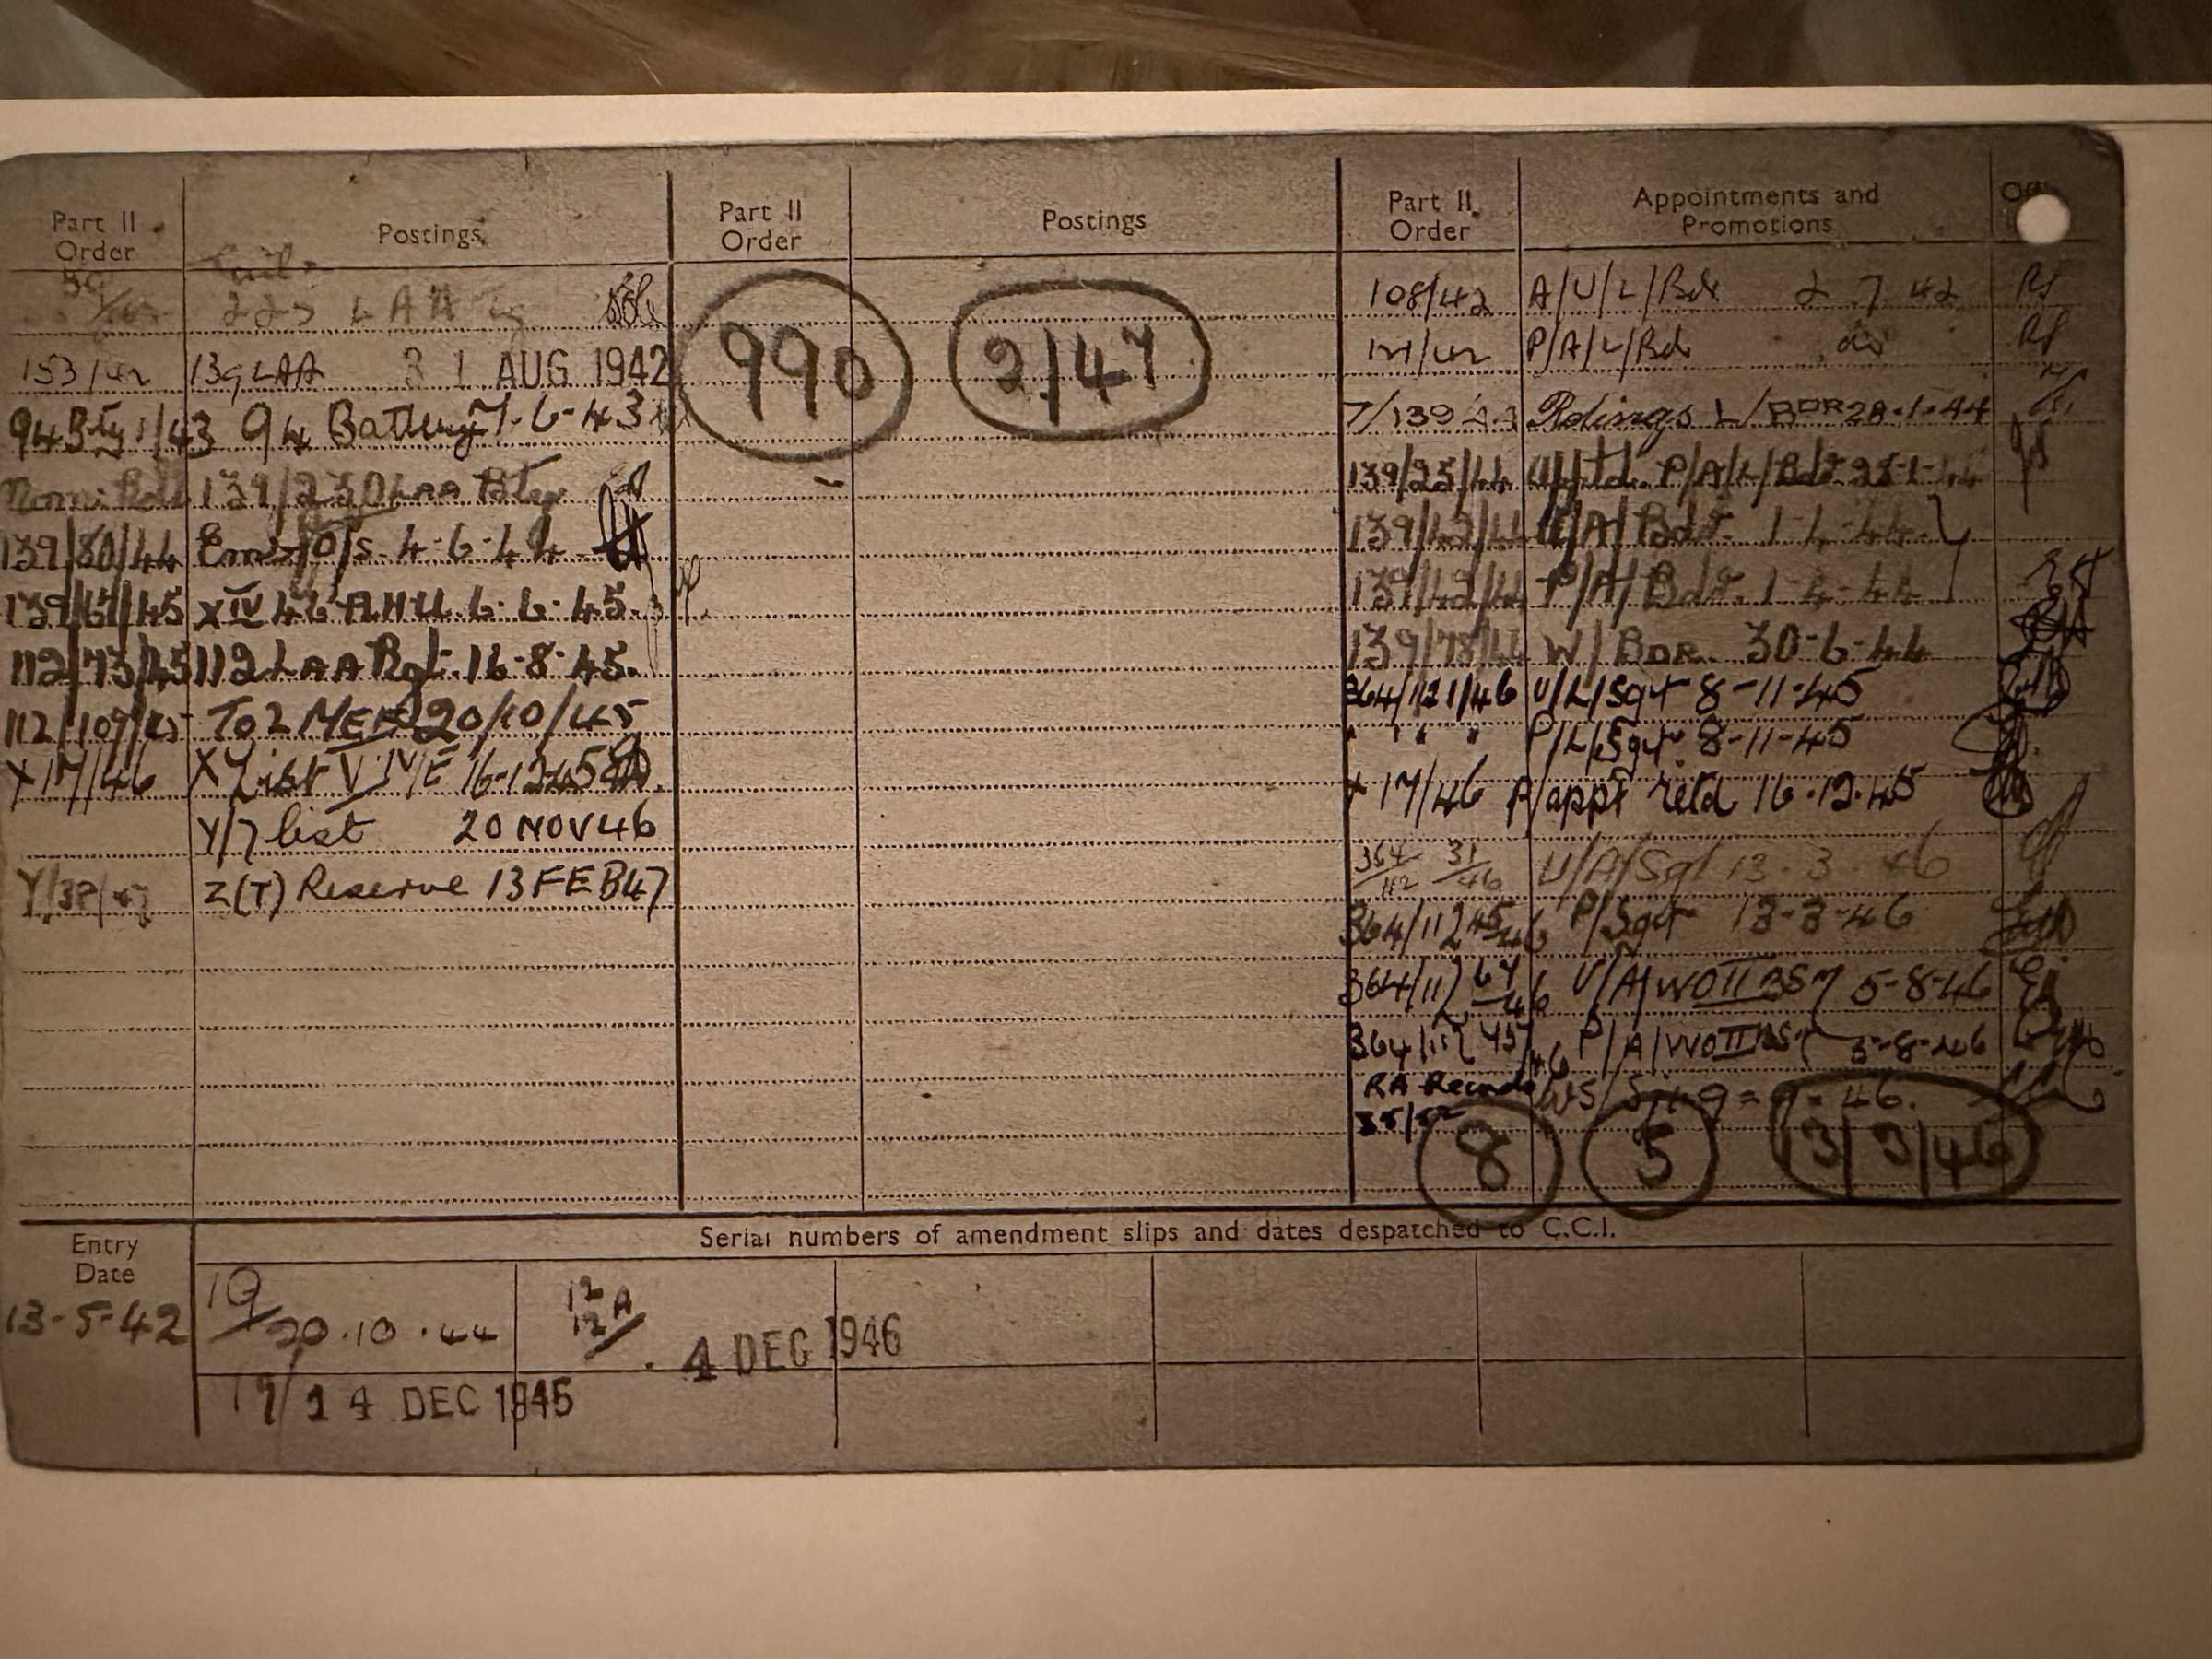 Part II Order
Postings
Part II Order
Postings
Part II Order
Appointments and Promotions
LAA
153/42 139 LAA 31 AUG 1942
94 Bty 1/43 94 Battery 7-6-43
139/230 LAA Bty
139/80/44 4-6-44
139/67/45 XIV 46 AHU 6-6-45
112/73/45 112 LAA Rgt. 16-8-45.
112/107/45 To 2 MEF 20/10/45
X17/46 X List V ME 16-12-45
Y/7 list 20 NOV 46
Z(T) Reserve 13 FEB 47
990
2/47
108/42 A/U/L/Bdr 2 7 42
P/A/L/Bdr do
7/139 L/BDR 28-1-44
139/23/44 P/A/L/Bdr
U/A/Bdr. 1-4-44
P/A/Bdr. 1-4-44
W/BDR. 30-6-44
364/121/46 U/L/Sgt 8-11-45
" " " P/L/Sgt 8-11-45
X 17/46 P/appt reld 16.12.45
364/112 31/46 U/A/Sgt 13.3.46
364/112 45/46 P/Sgt 13-3-46
364/112 67/46 U/A/WOII BSM 5-8-46
P/A/WOII BSM 5-8-46
RA Records WS/Sjt 46.
8
5
13/3/46
Serial numbers of amendment slips and dates despatched to C.C.I.
Entry Date
13-5-42
20.10.44
12 12A
4 DEC 1946
14 DEC 1945